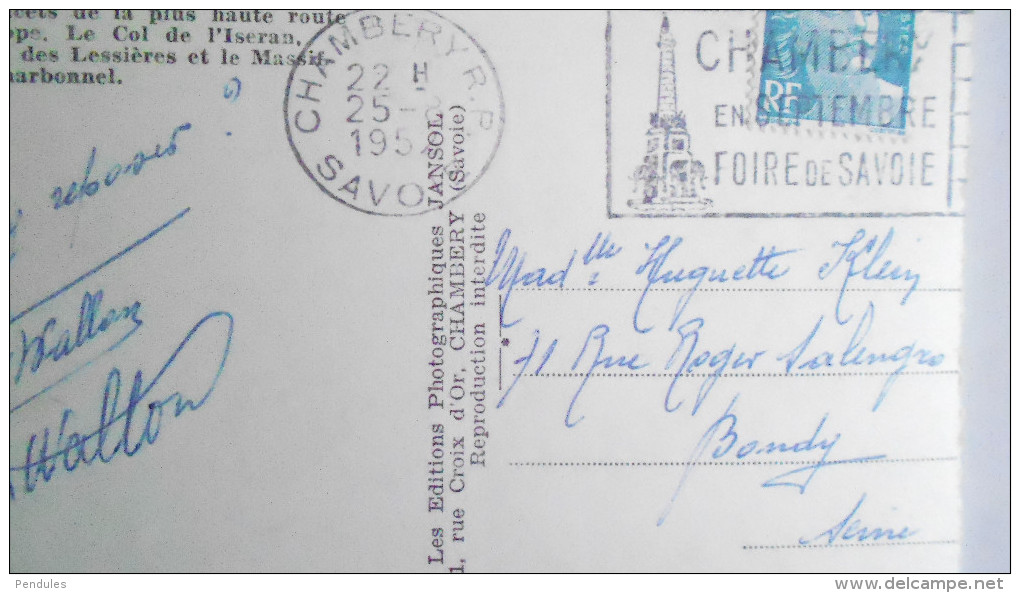 de la plus haute route
Le Col de l'Iseran,
des Lessières et le Massif
CHAMBERY R.P.
22 H
25 -
195
SAVOIE
CHAMBERY
EN SEPTEMBRE
FOIRE DE SAVOIE
RF
POSTES
Les Editions Photographiques JANSOL
1, rue Croix d'Or, CHAMBERY (Savoie)
Reproduction interdite
Madlle Huguette Klein
71 Rue Roger Salengro
Bondy
Seine
Pendules
delcampe.net